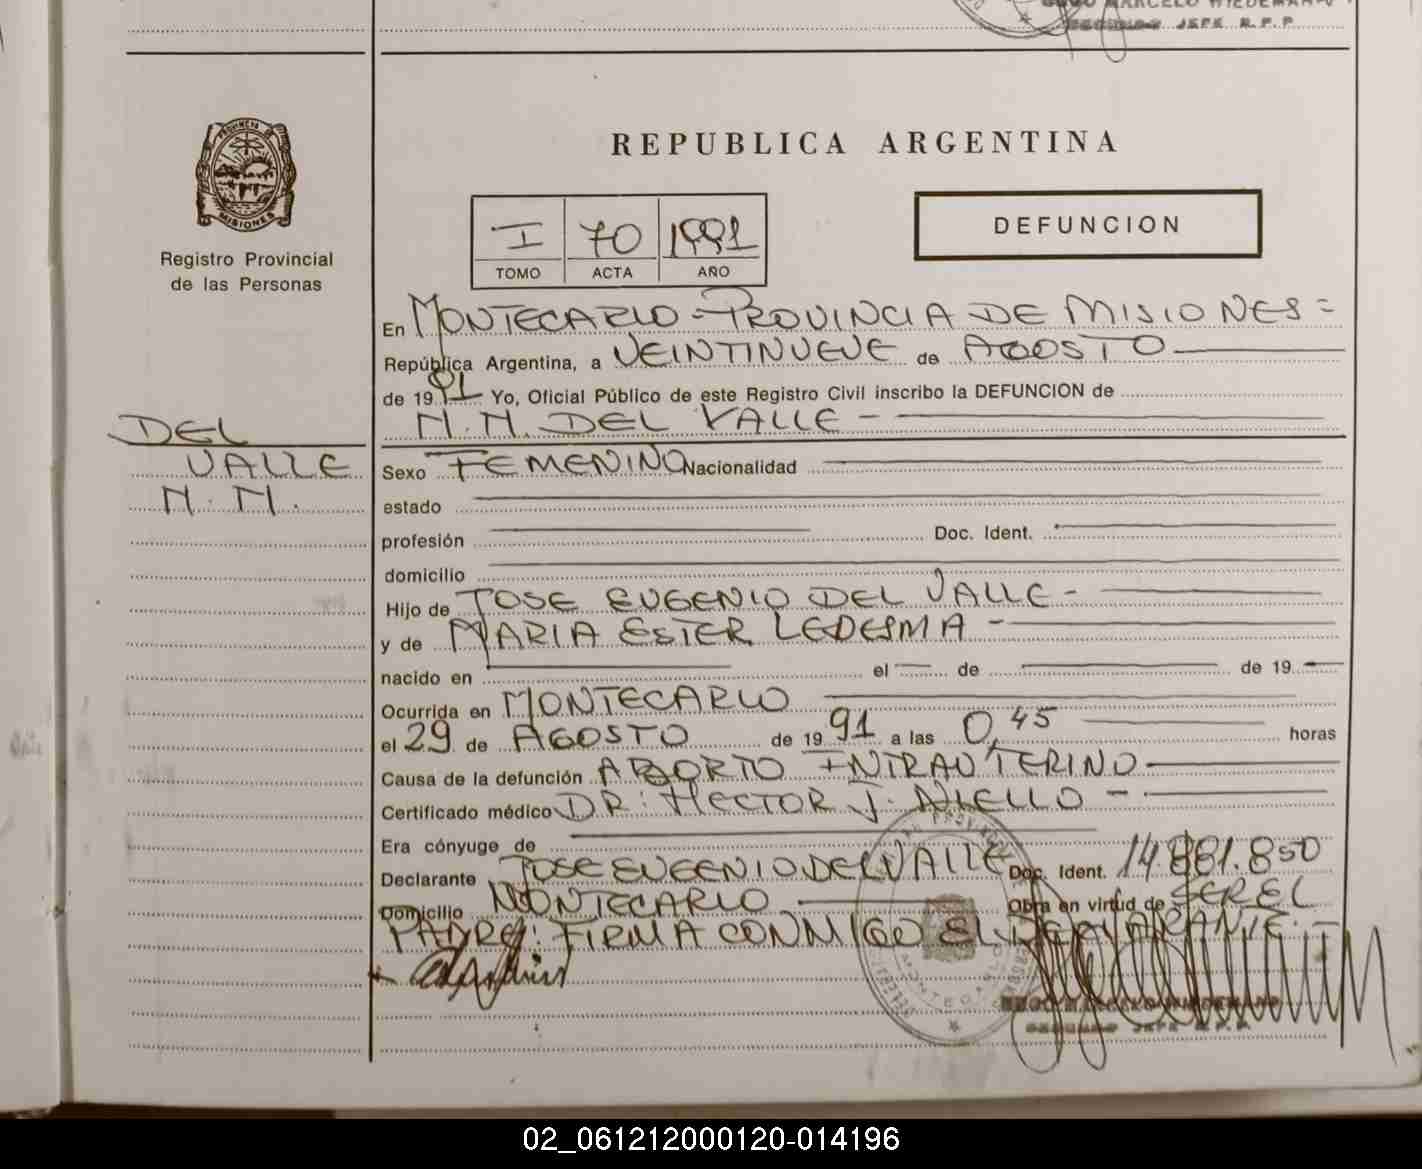 SEGUNDO JEFE R.P.P.
PROVINCIA DE
MISIONES
Registro Provincial
de las Personas
REPUBLICA ARGENTINA
I 70 1991
TOMO ACTA AÑO
DEFUNCION
En MONTECARLO - PROVINCIA DE MISIONES =
República Argentina, a VEINTINUEVE de AGOSTO
de 1991 Yo, Oficial Público de este Registro Civil inscribo la DEFUNCION de
N.N. DEL VALLE -
DEL
VALLE
N. N.
Sexo FEMENINO Nacionalidad
estado
profesión Doc. Ident.
domicilio
Hijo de JOSE EUGENIO DEL VALLE -
y de MARIA ESTER LEDESMA -
nacido en el de de 19
Ocurrida en MONTECARLO
el 29 de AGOSTO de 1991 a las 0,45 horas
Causa de la defunción ABORTO INTRAUTERINO
Certificado médico DR: HECTOR J. NIELLO -
Era cónyuge de
Declarante JOSE EUGENIO DEL VALLE Doc. Ident. 14.881.850
Domicilio MONTECARLO Obra en virtud de SER EL
PADRE: FIRMA CONMIGO EL DECLARANTE. -
MONTECARLO
SEGUNDO JEFE R.P.P.
02_061212000120-014196